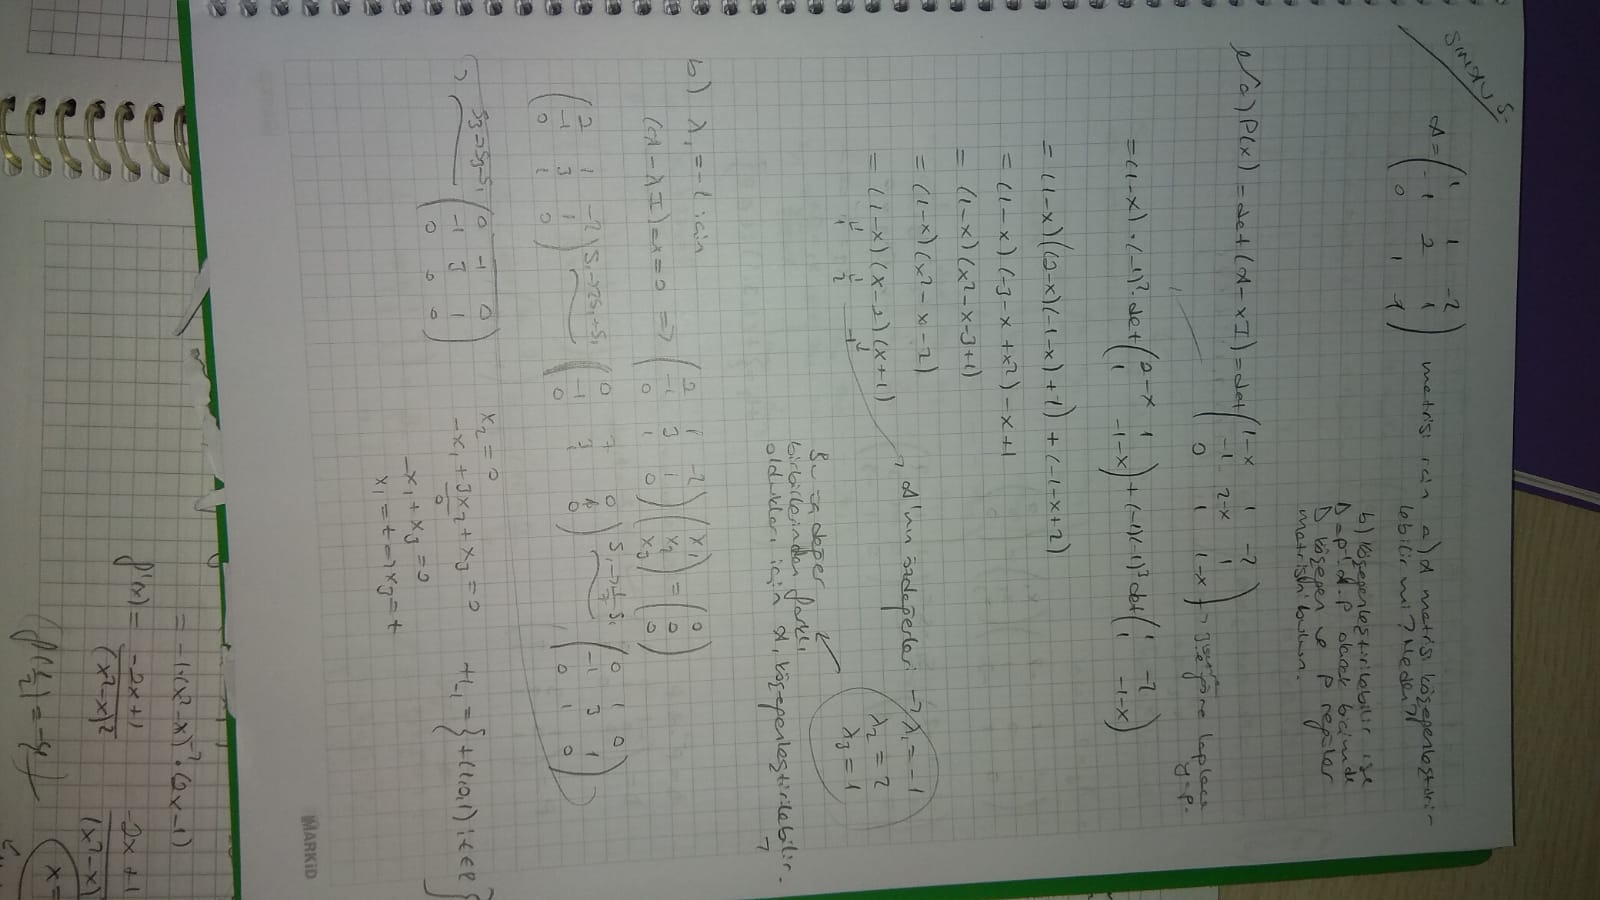 SINAV S.
A = ( 1 1 -2
-1 2 1
0 1 -1 ) matrisi için a) A matrisi köşegenleştiri-
lebilir mi? Neden?
b) köşegenleştirilebilir ise
D = p⁻¹.A.p olacak biçimde
D köşegen ve p regüler
matrisini bulun.
a) P(x) = det(A-xI) = det ( 1-x 1 -2
-1 2-x 1
0 1 -1-x ) → laplace
= (1-x).(-1)².det ( 2-x 1
1 -1-x ) + (-1)(-1)³ det ( 1 -2
1 -1-x )
= (1-x)((2-x)(-1-x)+1) + (-1-x+2)
= (1-x)(-3-x+x²) -x+1
= (1-x)(x²-x-3+1)
= (1-x)(x²-x-2)
= (1-x)(x-2)(x+1)
1 2 -1
→ A'nın özdeğerleri → λ₁ = -1
λ₂ = 2
λ₃ = 1
Bu özdeğer
birbirlerinden farklı
oldukları için A, köşegenleştirilebilir.
b) λ₁ = -1 için
(A-λI)x = 0 => ( 2 1 -2
-1 3 1
0 1 0 ) ( x₁
x₂
x₃ ) = ( 0
0
0 )
( 2 1 -2
-1 3 1
0 1 0 ) S₁→2S₂+S₁ ( 0 7 0
-1 3 1
0 1 0 ) ( 0 1 0
-1 3 1
0 1 0 )
S₃=S₃-S₁ ( 0 1 0
-1 3 1
0 0 0 )
x₂ = 0
-x₁ + 3x₂ + x₃ = 0
0
-x₁ + x₃ = 0
x₁ = t → x₃ = t
H₁ = { t(1,0,1) : t∈R }
= -1(x²-x)⁻².(2x-1)
f'(x) = -2x+1
(x²-x)²
-2x+1
(x²-x)
x=
MARKID